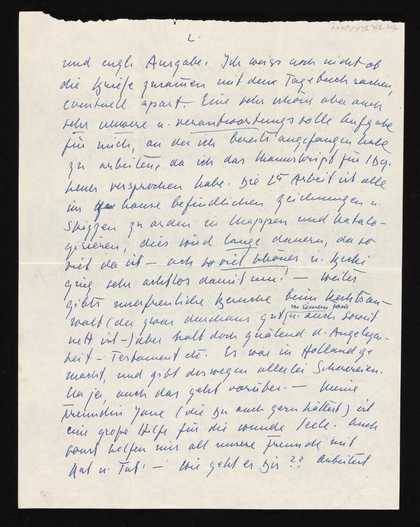 2.
und engl. Ausgabe. Ich weiss noch nicht ob
die Briefe zusammen mit dem Tagebuch
eventuell apart. Eine sehr schöne aber auch
sehr schwere u. verantwortungsvolle Aufgabe
für mich, an der ich bereits angefangen habe
zu arbeiten, da ich das Manuscript für
versprochen habe. Die 2te Arbeit ist alle
im hause befindlichen Zeichnungen u.
Skizzen zu orden in Mappen und katalo-
gisieren, dies wird lange dauern, da so
viel da ist – ach so viel schönes u.
ging sehr achtlos damit um! – Weiter
gibts unerfreuliche Besuche beim Rechtsan-
walt (der zwar durchaus gut u. auch sonst
in seinem
nett ist –) aber halt doch quälend d. Angelegen-
heit – Testament etc. Es war in Holland ge
macht, und gibt deswegen allerlei Scherereien.
Na ja, auch das geht vorüber. – Meine
Freundin Jane (die Du auch gern hättest) ist
eine große Hilfe für die wunde Seele. Auch
sonst helfen mir all unsere Freunde mit
Rat u. Tat. – Wie geht es Dir?? Arbeitest